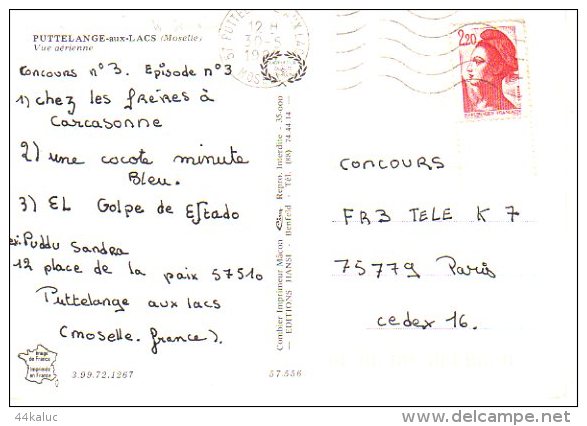 PUTTELANGE-aux-LACS (Moselle)
Vue aérienne
Concours n°3. Episode n°3
1) chez les frères à
Carcasonne
2) une cocote minute
Bleu.
3) EL Golpe de Estado
Puddu Sandra
12 place de la paix 57510
Puttelange aux lacs
(Moselle. france).
Image
de France
Imprimée
en France
3.99.72.1267
57.556
Combier Imprimeur Mâcon Repro. Interdite - 35.000
— EDITIONS HANSI - Benfeld - Tél. (88) 74.44.14 —
2,20
CONCOURS
FR3 TELE K 7
75779 Paris
cedex 16.
44kaluc
www.delcampe.net